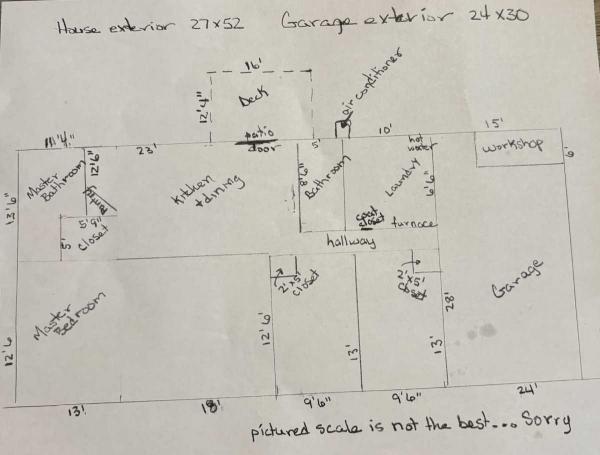 House exterior 27x52 Garage exterior 24x30
16'
Deck
12'4"
air conditioner
patio
door
11'4"
23'
5'
10'
hot
water
15'
workshop
6'
12'6"
Master
Bathroom
Pantry
13'6"
5'9"
5'
Closet
Kitchen
+dining
8'6"
Bathroom
Laundry
6'6"
coat
closet
furnace
hallway
2'x5'
closet
2'x5'
closet
Garage
28'
Master
Bedroom
12'6
12'6'
13'
13'
13'
18'
9'6"
9'6"
24'
pictured scale is not the best... Sorry